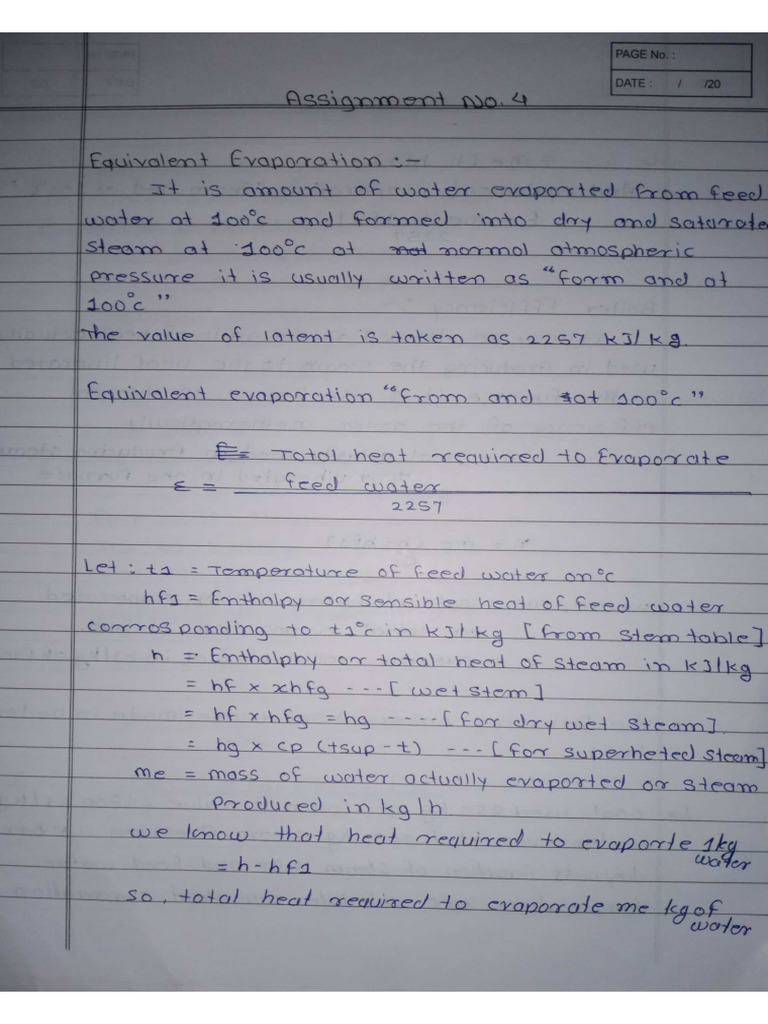 PAGE No. :
DATE : / /20
Assignment No. 4
Equivalent Evaporation :-
It is amount of water evaported from feed
water at 100°c and formed into dry and saturate
steam at 100°c at not normal atmospheric
pressure it is usually written as "form and at
100°c"
The value of latent is taken as 2257 kJ/kg.
Equivalent evaporation "from and at 100°c"
E = Total heat required to Evaporate
ε = feed water
2257
Let : t1 = Temperature of feed water on°c
hf1 = Enthalpy or sensible heat of feed water
corrosponding to t1°c in kJ/kg [from stem table]
h = Enthalphy or total heat of steam in kJ/kg
= hf x xhfg ---- [wet stem]
= hf x hfg = hg ----- [for dry wet steam].
= hg x cp (tsup - t) --- [for superheted steam]
me = mass of water actually evaported or steam
produced in kg/h.
we know that heat required to evaporte 1kg
water
= h - hf1
so, total heat required to evaporate me kg of
water